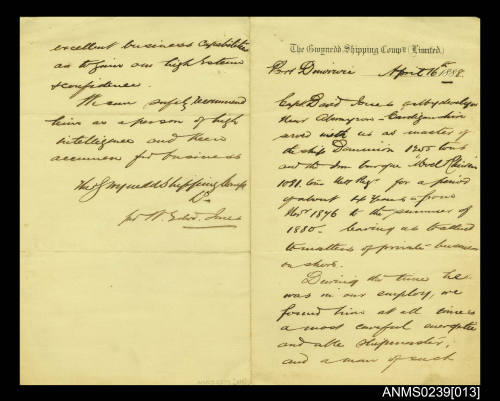 The Gwynedd Shipping Compy (Limited)
Port Dinorwic April 16th 1888
Capt David Jones
near Cardiganshire
served with us as master of
the ship Dominion 1255 tons
and the Iron barque
1091 tons Nett Reg. for a period
of about 4 years from
Novr 1876 to the summer of
1880 - leaving us to attend
to matters of private business
on shore.
During the time he
was in our employ, we
found him at all times
a most careful energetic
and able shipmaster,
and a man of such
excellent business capabilities
as to gain our high esteem
& confidence.
We can safely recommend
him as a person of high
intelligence and keen
accumen for business
The Gwynedd Shipping Compy
Ld
pr W. Edwd. Jones
ANMS0239[013]